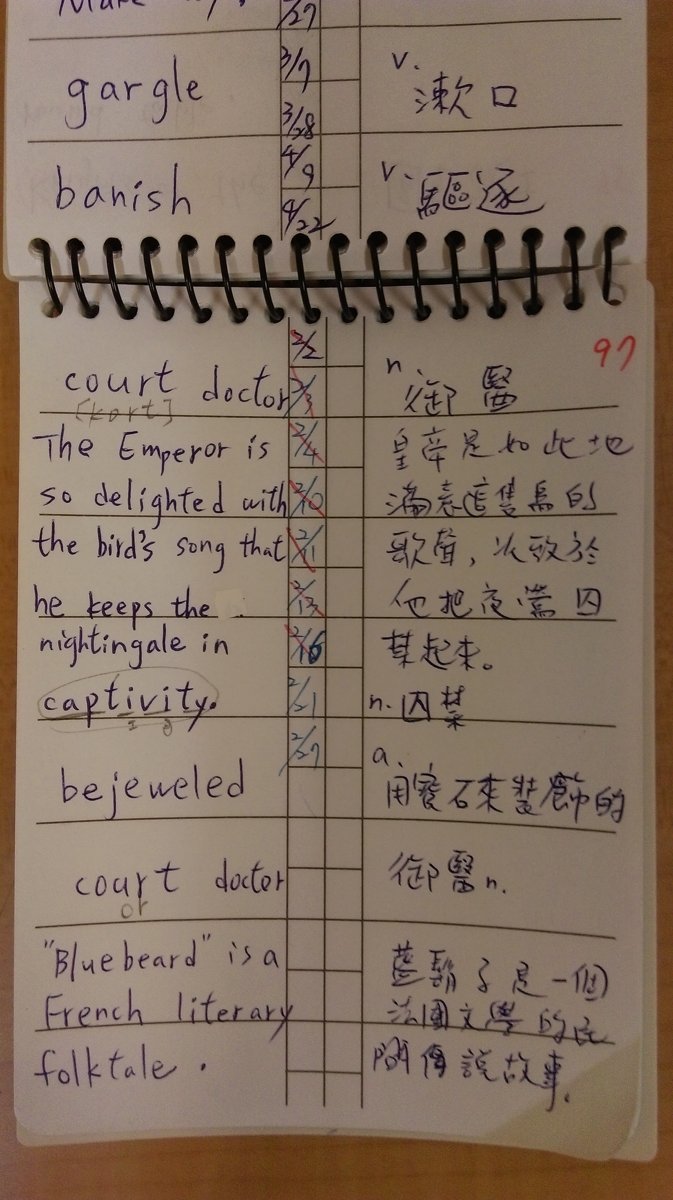 2/27
gargle 3/7 v. 漱口
3/28
banish 4/9 v. 驅逐
4/22
97
court doctor 2/2 n. 御醫
[kort] 2/3
The Emperor is 2/4 皇帝是如此地
so delighted with 2/10 滿意這隻鳥的
the bird's song that 2/11 歌聲,以致於
he keeps the 2/13 他把夜鶯囚
nightingale in 2/16 禁起來。
captivity. 2/21 n. 囚禁
2/27
bejeweled a. 用寶石來裝飾的
court doctor 御醫 n.
or
"Bluebeard" is a 藍鬍子是一個
French literary 法國文學的民
folktale. 間傳說故事.